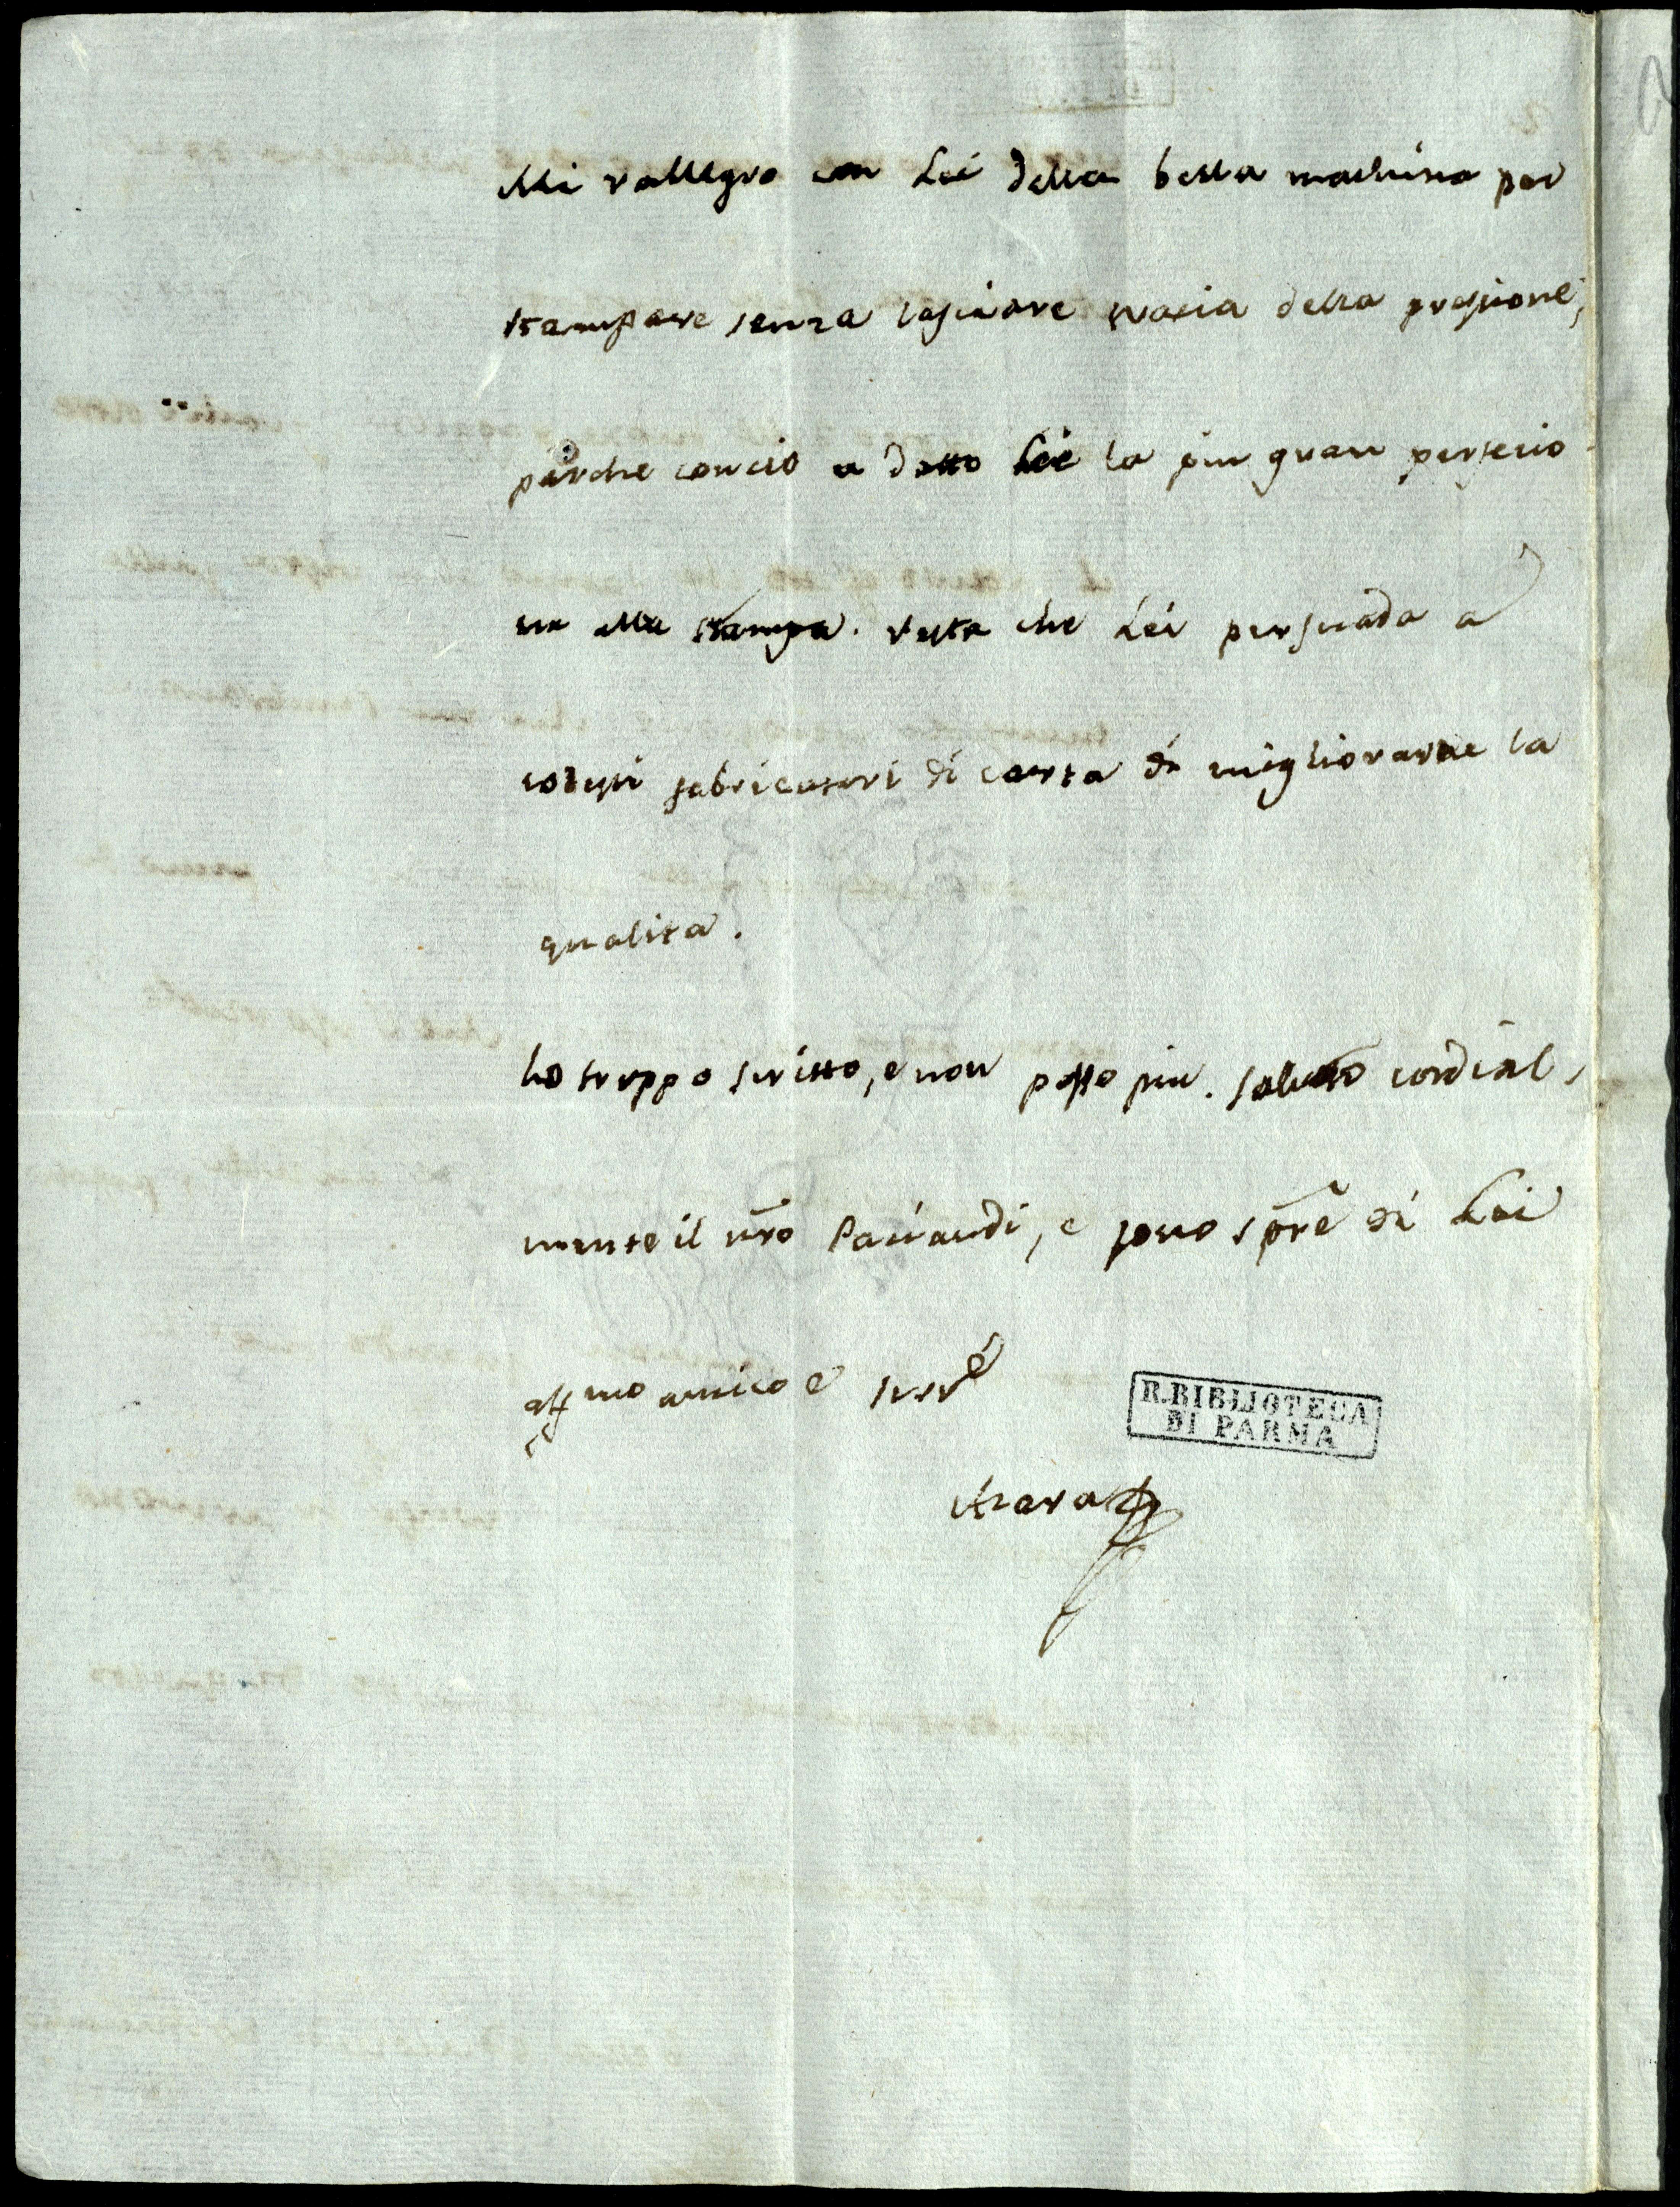 Mi rallegro con Lei della bella machina per
stampare senza lasciare tracia della pressione,
perche con cio a datto Lei la piu gran perfecio-
ne alla stampa. resta che Lei persuada a
codesti fabricatori di carta di migliorarne la
qualita.
ho troppo scritto, e non posso piu. saluto cordial,
mente il nro Paciaudi, e sono spre di Lei
affmo amico e serre
Azara
R. BIBLIOTECA
DI PARMA